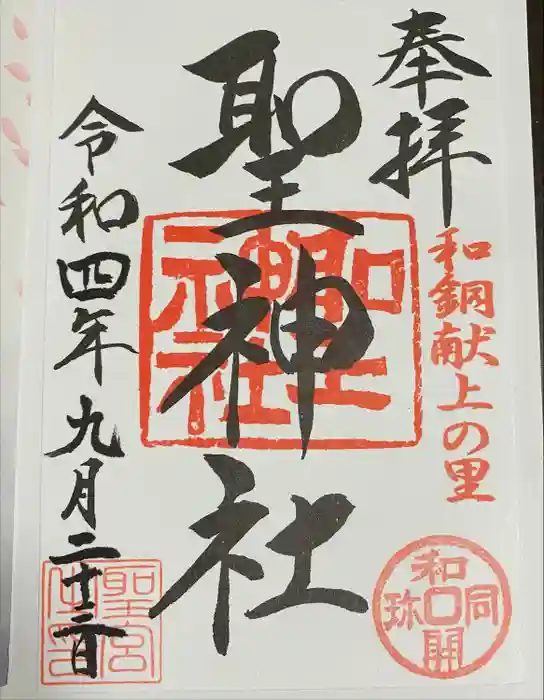 奉拝
和銅献上の里
聖神社
令和四年九月二十三日
聖神社
和同開珎